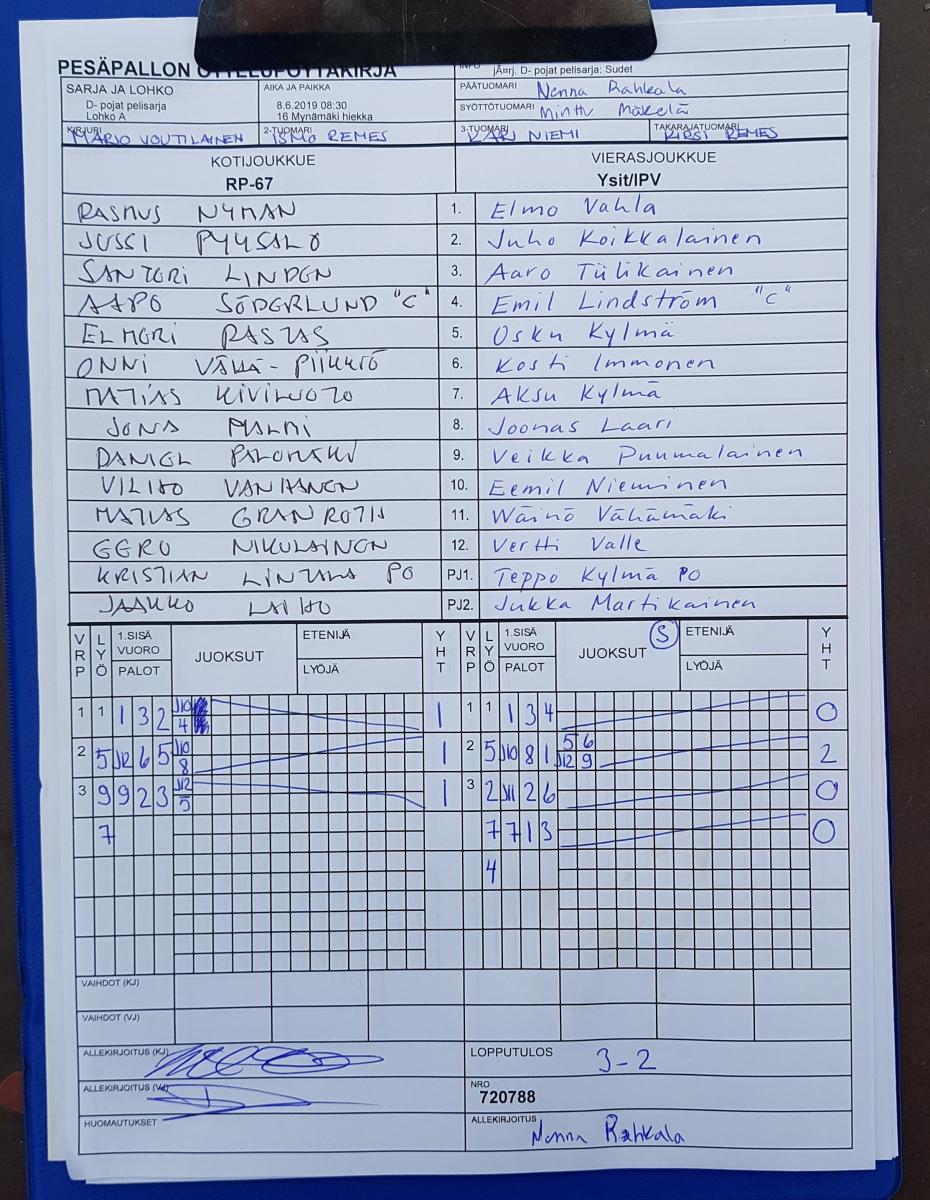 PESÄPALLON OTTELUPÖYTÄKIRJA
INFO
jÃ¤rj. D- pojat pelisarja: Sudet
SARJA JA LOHKO
D- pojat pelisarja
Lohko A
AIKA JA PAIKKA
8.6.2019 08:30
16 Mynämäki hiekka
PÄÄTUOMARI Nenna Rahkala
SYÖTTÖTUOMARI Minttu Mäkelä
KIRJURI MARJO VOUTILAINEN
2-TUOMARI ISMO REMES
3-TUOMARI KARI NIEMI
TAKARAJATUOMARI KIRSI REMES
KOTIJOUKKUE VIERASJOUKKUE
RP-67 Ysit/IPV
RASMUS NYMAN 1. Elmo Vahla
JUSSI PYYSALO 2. Juho Koikkalainen
SANTERI LINDEN 3. Aaro Tülikainen
AAPO SÖDERLUND "C" 4. Emil Lindström "C"
ELMERI RASTAS 5. Osku Kylmä
ONNI VÄHÄ-PIIKKIÖ 6. Kosti Immonen
MATIAS KIVILUOTO 7. Aksu Kylmä
JONA MALMI 8. Joonas Laari
DANIEL PALOMÄKI 9. Veikka Puumalainen
VILHO VANHANEN 10. Eemil Nieminen
MATIAS GRANROTH 11. Wäinö Vähämäki
EERO NIKULAINEN 12. Vertti Valle
KRISTIAN LINTALA PO PJ1. Teppo Kylmä PO
JAAKKO LAIHO PJ2. Jukka Martikainen
VRP LYÖ 1.SISÄ VUORO PALOT JUOKSUT ETENIJÄ LYÖJÄ YHT VRP LYÖ 1.SISÄ VUORO PALOT JUOKSUT S ETENIJÄ LYÖJÄ YHT
1 1 1 3 2 J10 4 1 1 1 1 3 4 0
2 5 J12 6 5 J10 8 1 2 5 J10 8 1 5 6 J12 9 2
3 9 9 2 3 J12 5 1 3 2 J11 2 6 0
7 7 7 1 3 0
4
VAIHDOT (KJ)
VAIHDOT (VJ)
ALLEKIRJOITUS (KJ)
LOPPUTULOS 3-2
ALLEKIRJOITUS (VJ)
NRO
720788
HUOMAUTUKSET
ALLEKIRJOITUS Nenna Rahkala